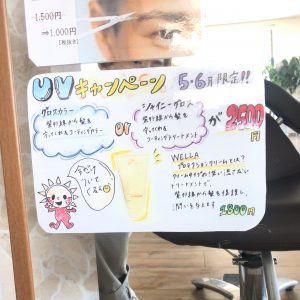 1,500円
⇒1,000円
[税抜き]
UVキャンペーン 5・6月限定!!
グロスカラー
紫外線から髪を
守ってくれるコーティングカラー
or
シャイニーグロス
紫外線から髪を
守ってくれる
コーティングトリートメント
が2500
円
今だけ
ついて
くるよ
WELLA
プロテクションクリームとは?
トリートメントで、
紫外線から髪を保護し、
1800円